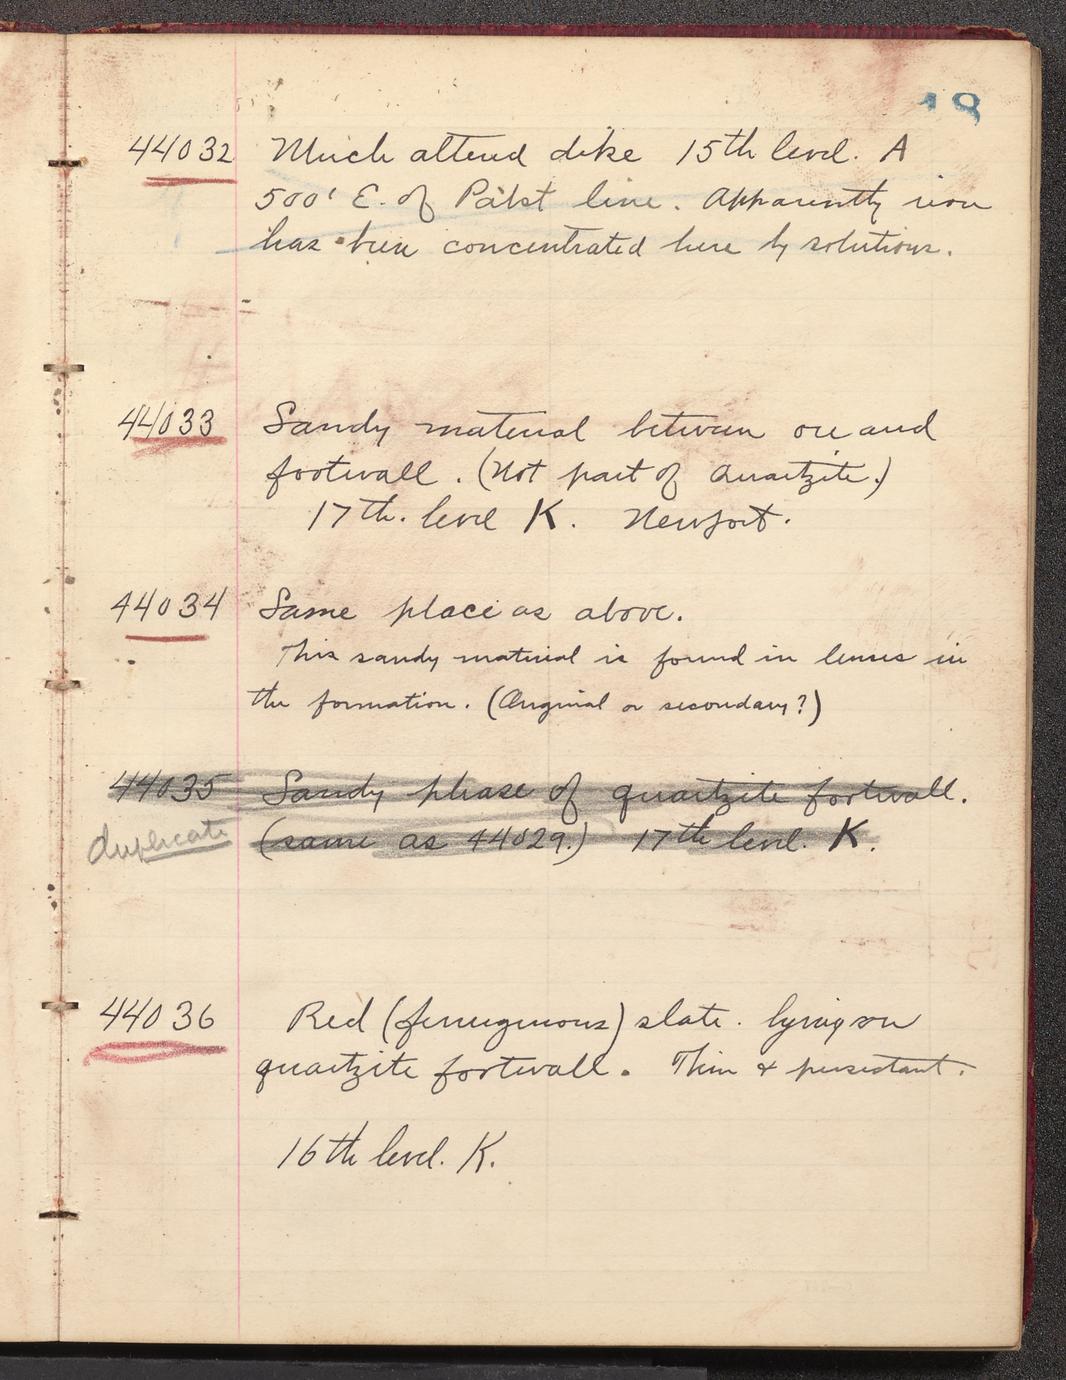 18
44032 Much altered dike 15th level. A
500' E. of Pabst line. Apparently iron
has been concentrated here by solutions.
44033 Sandy material between ore and
footwall. (Not part of Quartzite.)
17th. level K. Newport.
44034 Same place as above.
This sandy material is found in lenses in
the formation. (Original or secondary?)
44035 Sandy phase of quartzite footwall.
duplicate (same as 44029.) 17th level. K.
44036 Red (ferruginous) slate. lying on
quartzite footwall. Thin & persistant.
16th level. K.